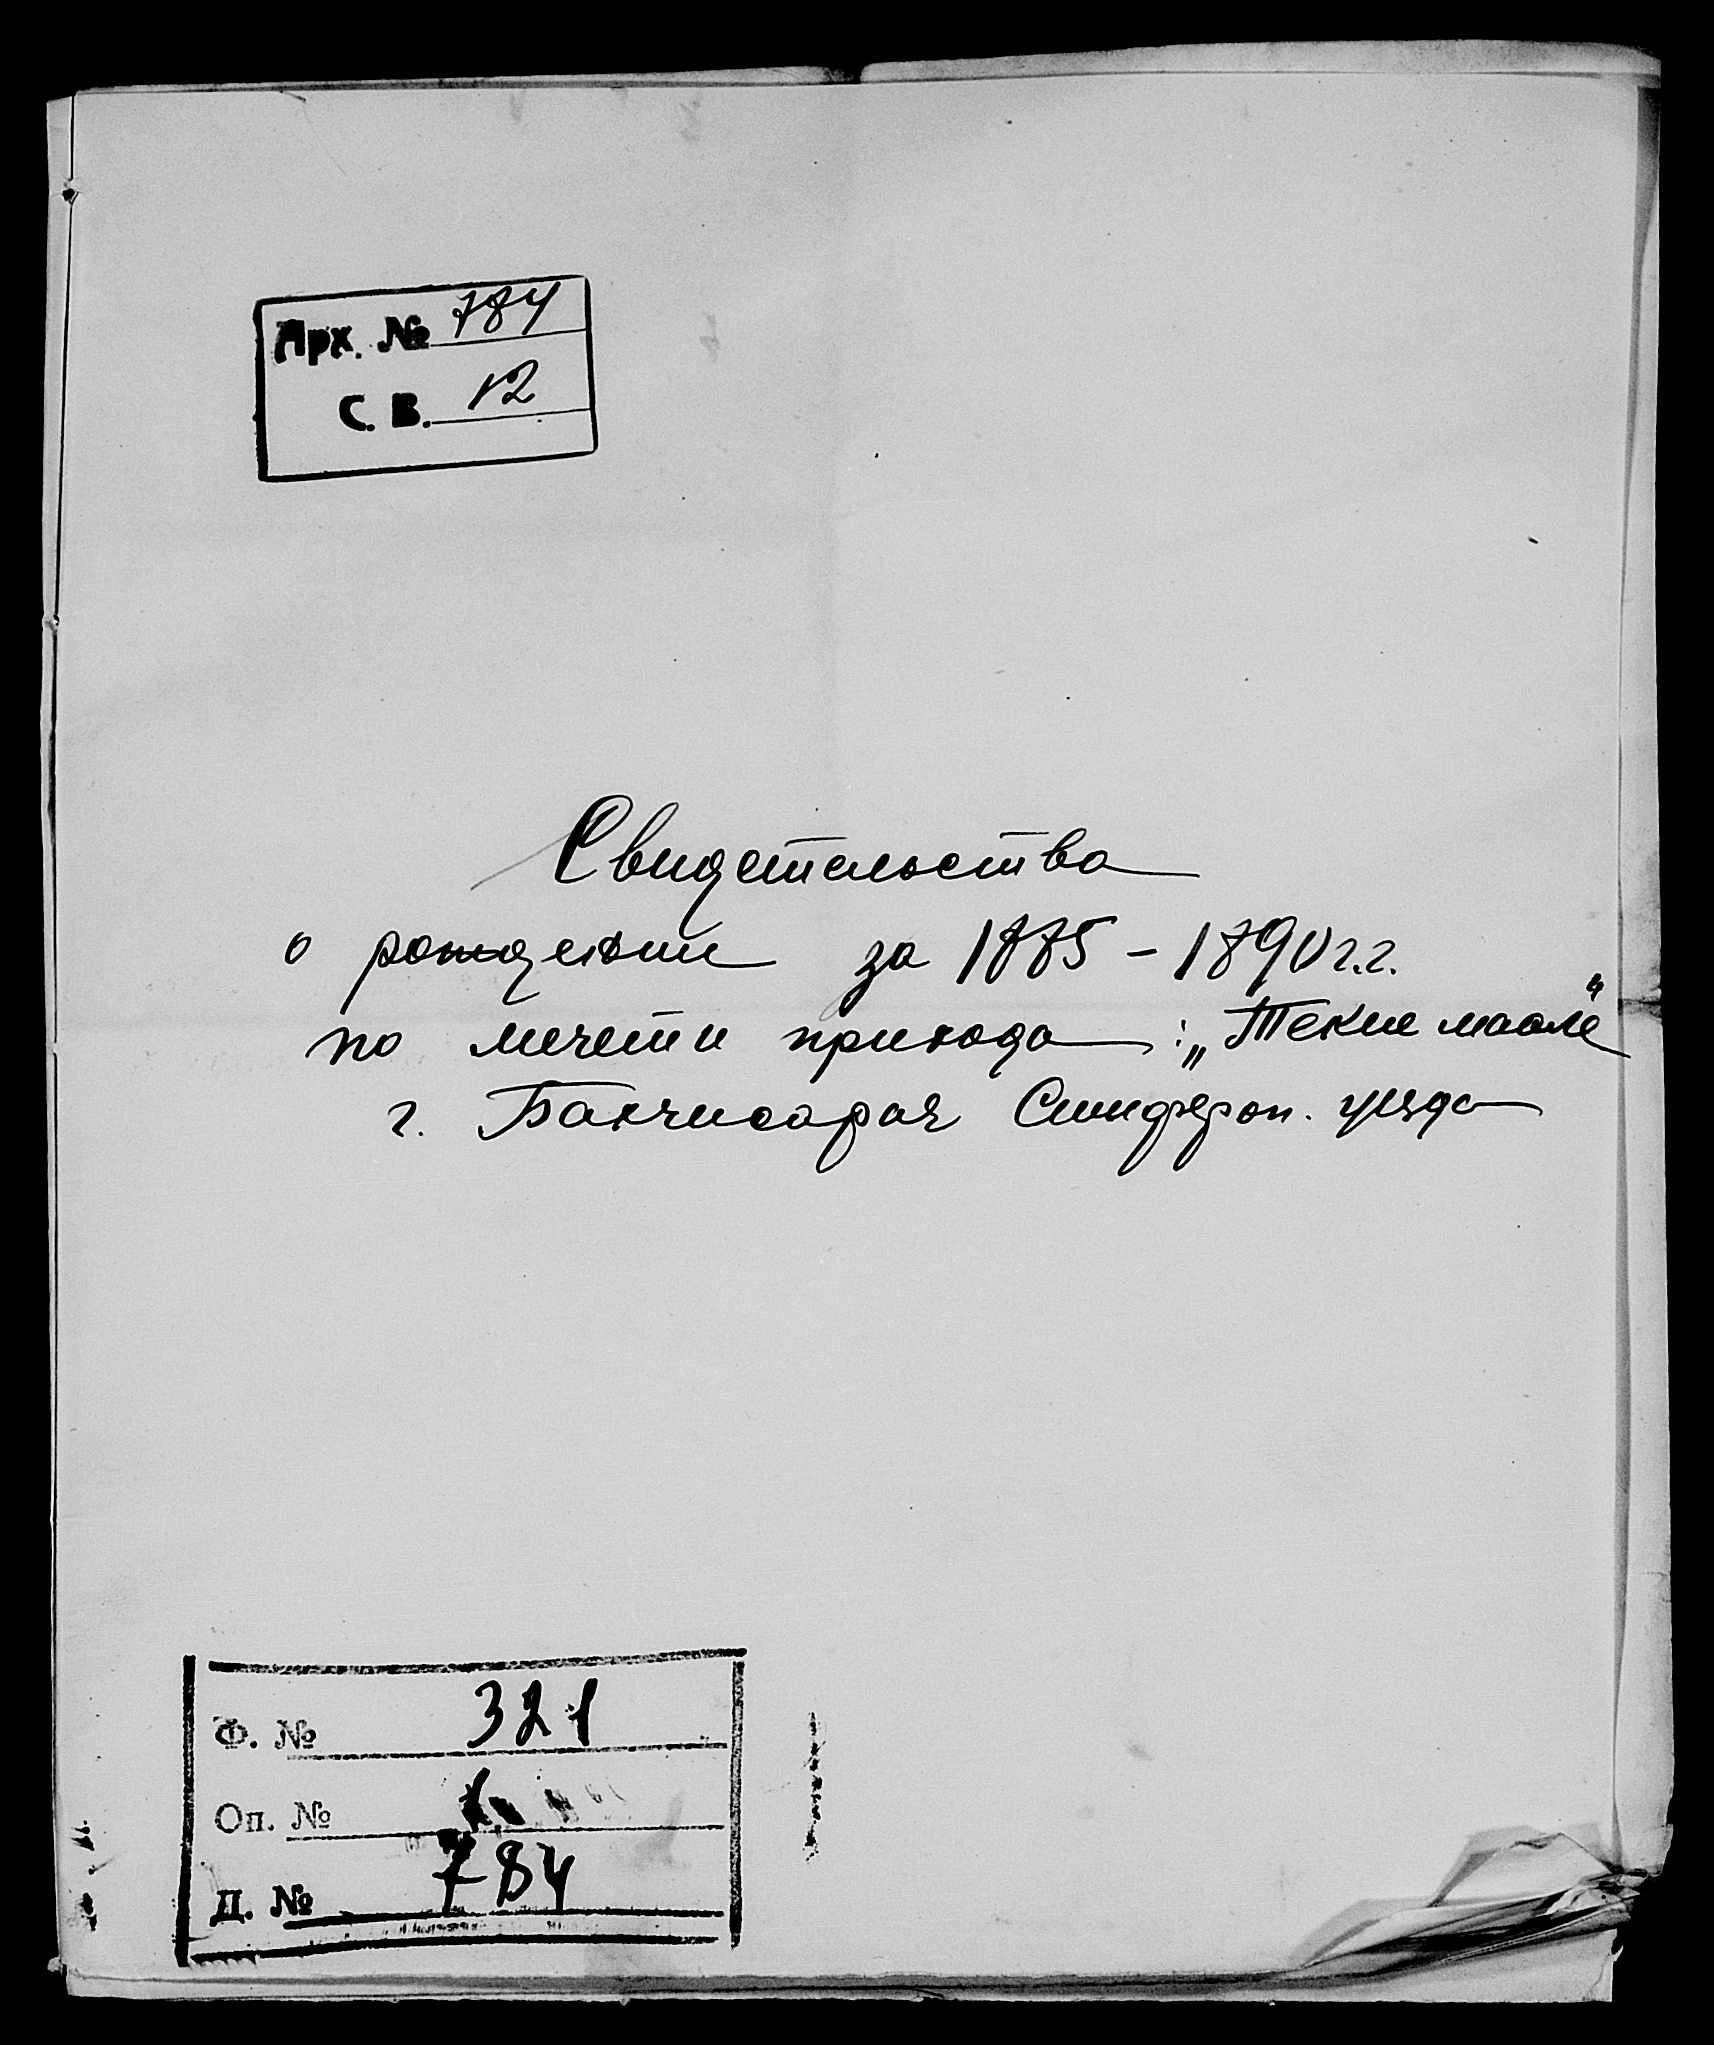 Арх. № 784
С. В. 12
Свидетельства
о рождении за 1885 - 1890 г.г.
по мечети прихода: „Текие маале"
г. Бахчисарая Симфероп. уезда
Ф. № 321
Оп. № 1
Д. № 784